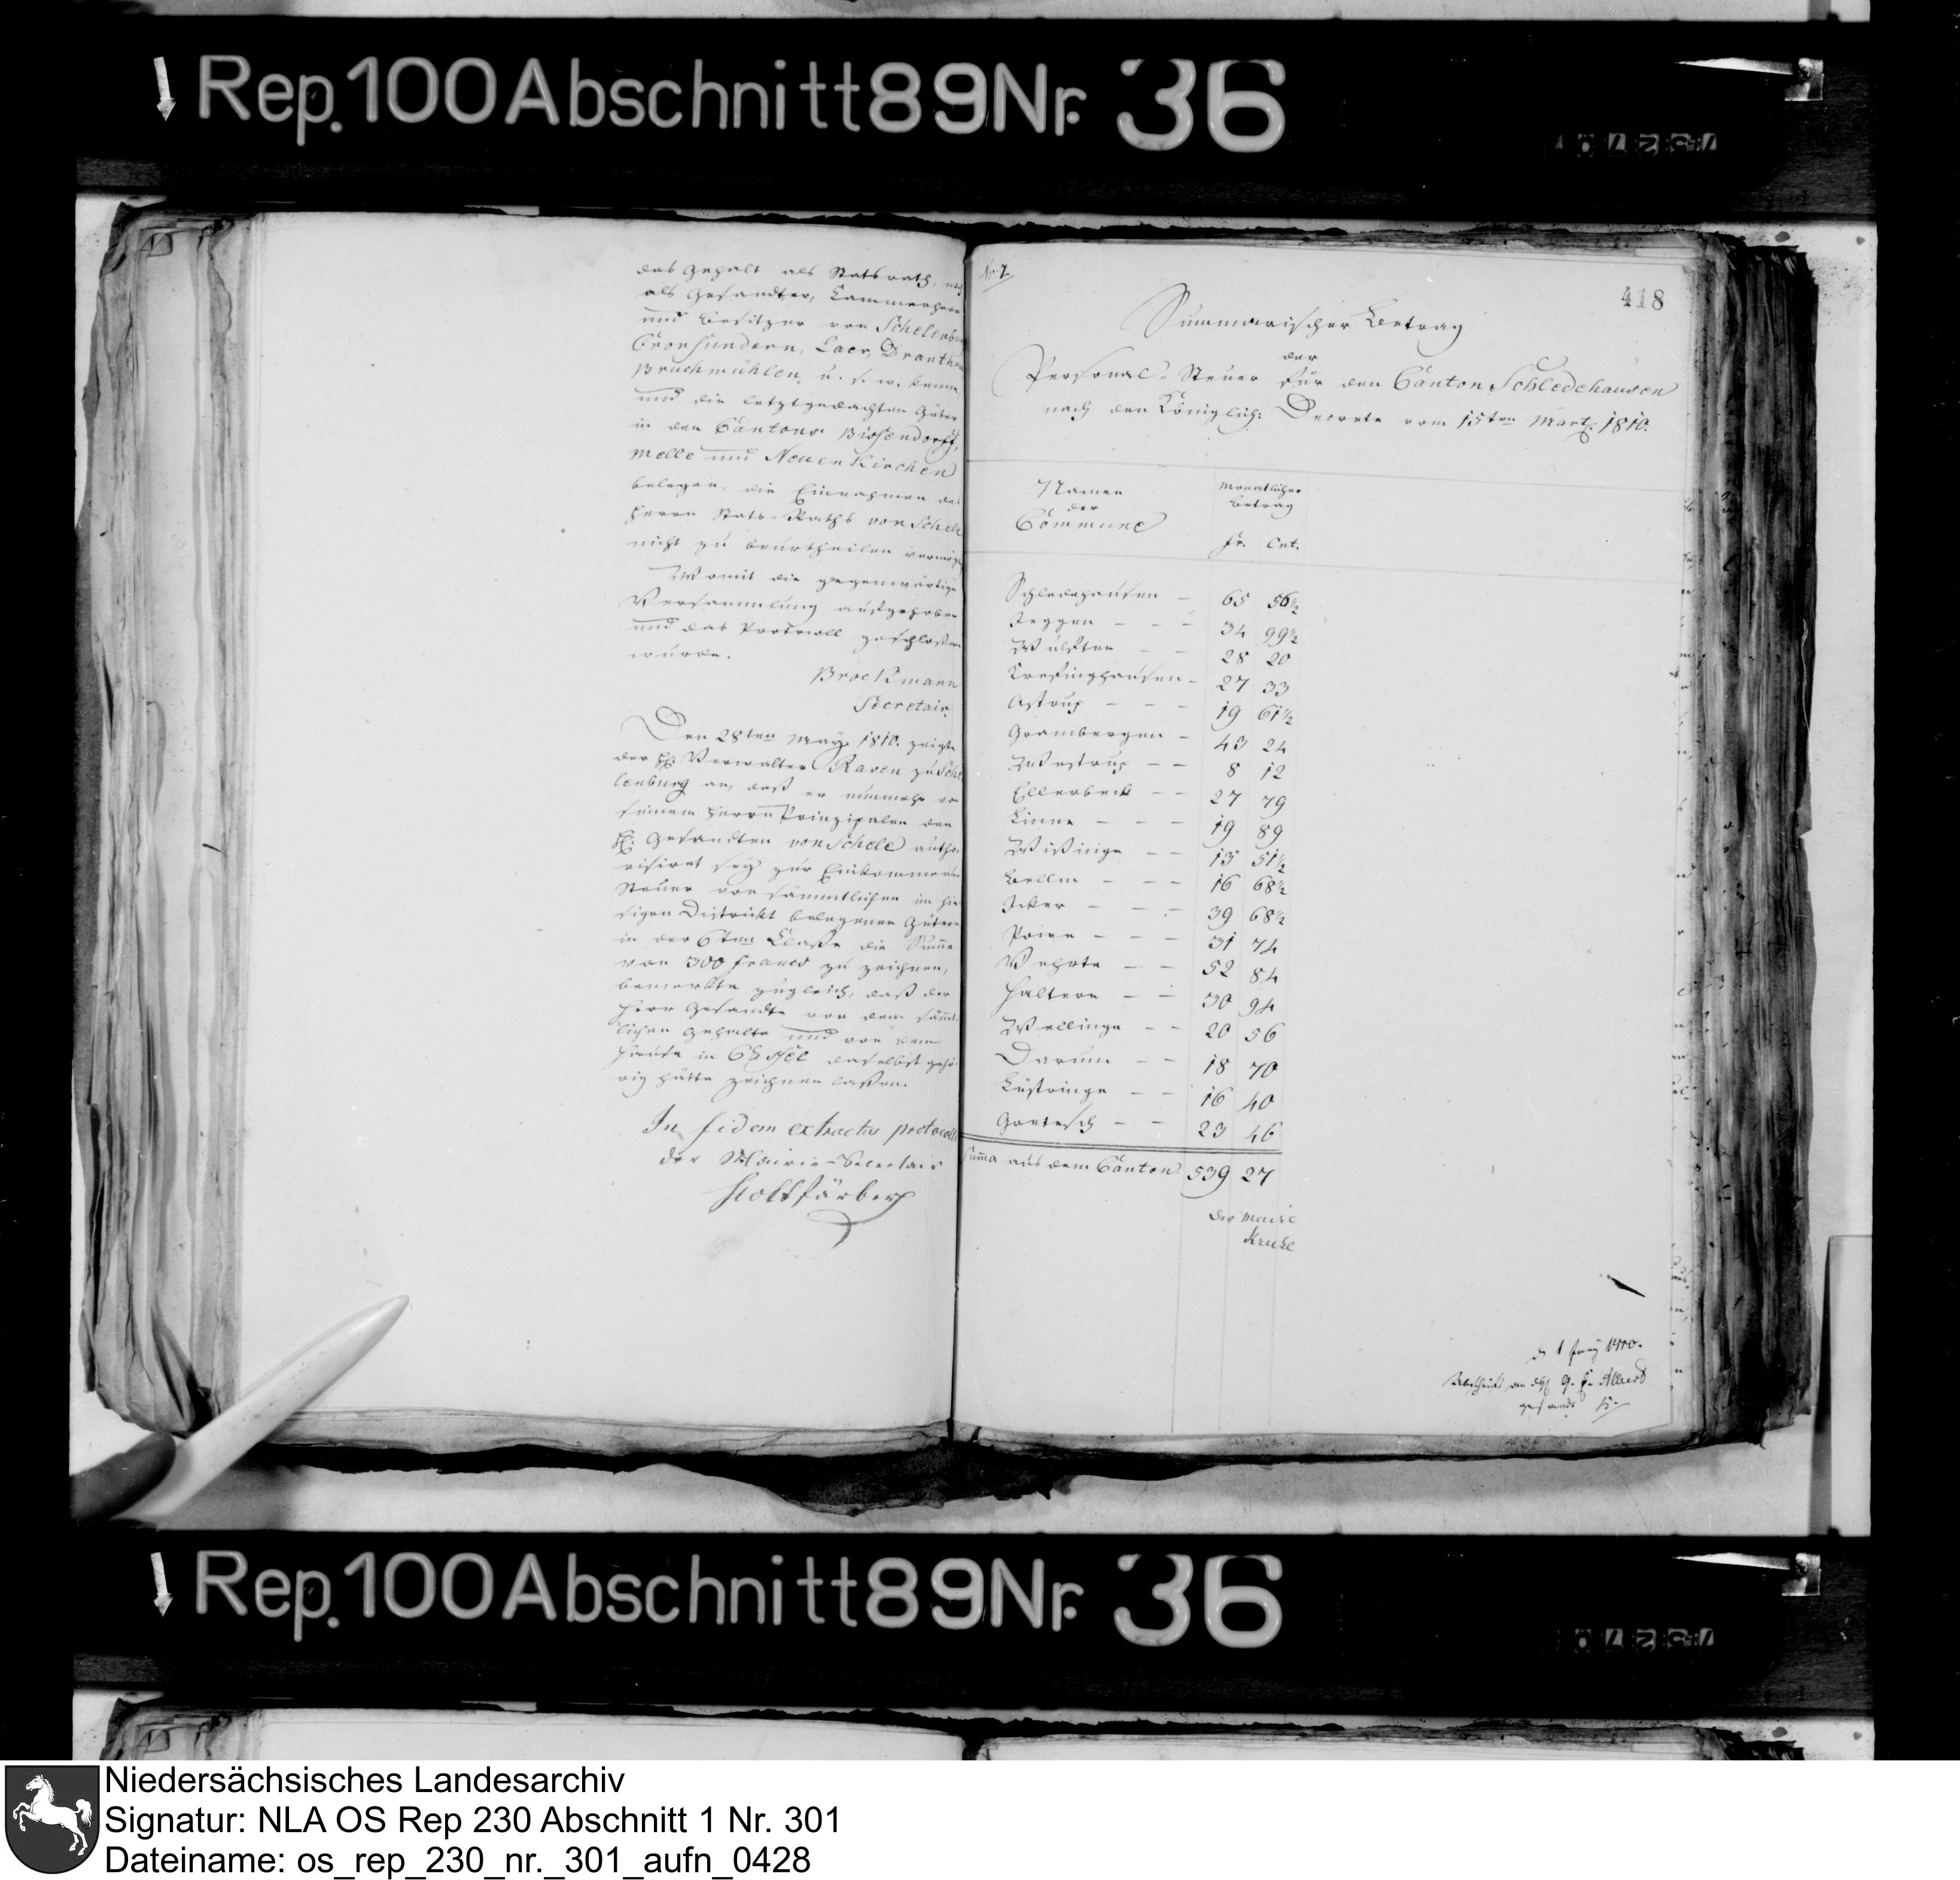 Rep. 100 Abschnitt 89 Nr. 36
das Gehalt als Stats rath,
als Gesandter, Cammerherr
und Besitzer von Schelenbu
Cronsundern, Laer, Dranthu
Bruchmühlen u. s. w. kenne,
und die letztgedachten Güter
in den Cantons Bissendorff,
Melle und Neuenkirchen
belegen, die Einnahmen des
Herrn Stats-Raths von Schele
nicht zu beurtheilen vermöge
Womit die gegenwärtige
Versammlung aufgehoben
und das Protocoll geschloßen
wurde.
Brockmann
Secretair.
Den 28ten May 1810. zeigte
der H. Verwalter Raven zu Sche
lenburg an, daß er nunmehr von
seinem Herrn Prinzipalen dem
H. Gesandten von Schele autho
risirt sey zur Einkommen
Steuer von sämmtlichen im hie
sigen District belegenen Gütern
in der 6ten Claße die Summe
von 300 Francs zu zeichnen,
bemerkte zugleich, daß der
Herr Gesandte von dem sämt
lichen Gehalte und von dem
Hause in Cassel daselbst gehö
rig hätte zeichnen laßen.
In fidem extractus protocolli
der Mairie-Secretair
Holtfärber
Nr. 7.
418
Summarischer Betrag
der
Personal-Steuer für den Canton Schledehausen
nach dem Königlich: Decrete vom 15ten Mart: 1810.
Namen der Commune
Monatlicher Betrag
fr. Cnt.
Schledehausen – 65 56½
Jeggen – – – 34 99½
Wulften – – 28 20
Krevinghausen – 27 33
Astrup – – – 19 61½
Grambergen – 43 24
Westrup – – 8 12
Ellerbeck – – 27 79
Linne – – – 19 89
Wißinge – – 13 51½
Bellm – – – 16 68½
Icker – – – 39 68½
Powe – – – 31 74
Vehrte – – 52 84
Haltern – – 30 94
Wellinge – – 20 56
Darum – – 18 70
Lüstringe – – 16 40
Gretesch – – 23 46
Summa aus dem Canton 539 27
Der Maire
Kruse
d 1 Juny 1810.
Abschrift an
gesandt
Rep. 100 Abschnitt 89 Nr. 36
Niedersächsisches Landesarchiv
Signatur: NLA OS Rep 230 Abschnitt 1 Nr. 301
Dateiname: os_rep_230_nr._301_aufn_0428